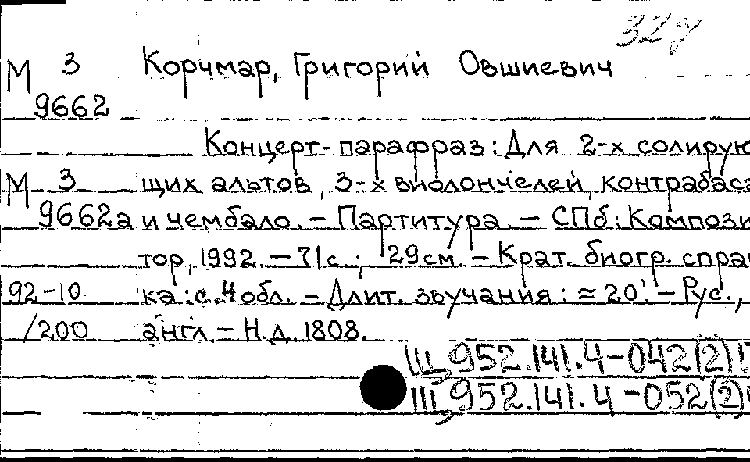 32 у
М 3 Корчмар, Григорий Овшиевич
9662
Концерт-парафраз: Для 2-х солирую
М 3 щих альтов, 3-х виолончелей, контрабаса
9662а и чембало. – Партитура. – СПб: Компози
тор, 1992. – 71 с.; 29 см. – Крат. биогр. справ
92-10 ка: с. 4 обл. – Длит. звучания: ≈ 20'. – Рус.,
/200 англ – Н.д. 1808.
Щ 952.141.4-042(2)
Щ 952.141.4-052(2)